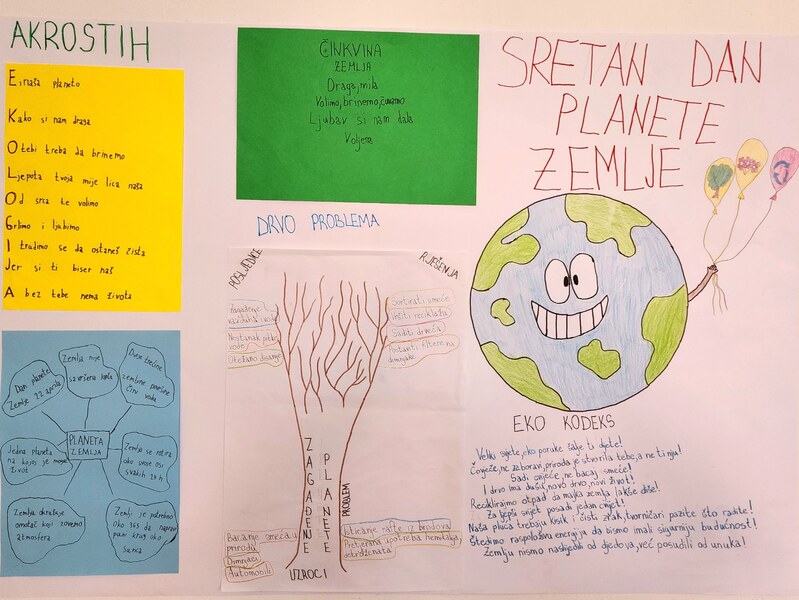 AKROSTIH
E, naša planeto
Kako si nam draga
O tebi treba da brinemo
Ljepota tvoja mije lica naša
Od srca te volimo
Grlimo i ljubimo
I trudimo se da ostaneš čista
Jer si ti biser naš
A bez tebe nema života
ČINKVINA
ZEMLJA
Draga, mila
Volimo, brinemo, čuvamo
Ljubav si nam dala
Voljena
SRETAN DAN
PLANETE
ZEMLJE
DRVO PROBLEMA
POSLJEDICE
RJEŠENJA
Zagađenje
vazduha i vode
Nestanak pitke
vode
Otežano disanje
Sortirati smeće
Vršiti reciklažu
Saditi drveća
Postaviti filtere na
dimnjake
ZAGAĐENJE
PLANETE
PROBLEM
Bacanje smeća u
prirodu
Dimnjaci
Automobili
UZROCI
Isticanje nafte iz brodova
Pretjerana upotreba hemikalija,
PLANETA
ZEMLJA
Dan planete
Zemlje 22. aprila
Zemlja nije
savršena lopta
Dvije trećine
zemljine površine
čini voda
Jedna planeta
na kojoj je moguć
život
Zemlja se rotira
oko svoje osi
svakih 24 h
Zemlju okružuje
omotač koji zovemo
atmosfera
Zemlji je potrebno
oko 365 da napravi
puni krug oko
Sunca
EKO KODEKS
Veliki svijete, eko poruke šalje ti dijete!
Čovječe, ne zaboravi, priroda je stvorila tebe, a ne ti nju!
Sadi cvijeće, ne bacaj smeće!
I drvo ima dušu, novo drvo, novi život!
Reciklirajmo otpad da majka zemlja lakše diše!
Za ljepši svijet posadi jedan cvijet!
Naša pluća trebaju kisik i čisti zrak, tvorničari pazite što radite!
Štedimo raspoloživu energiju da bismo imali sigurniju budućnost!
Zemlju nismo naslijedili od djedova, već posudili od unuka!